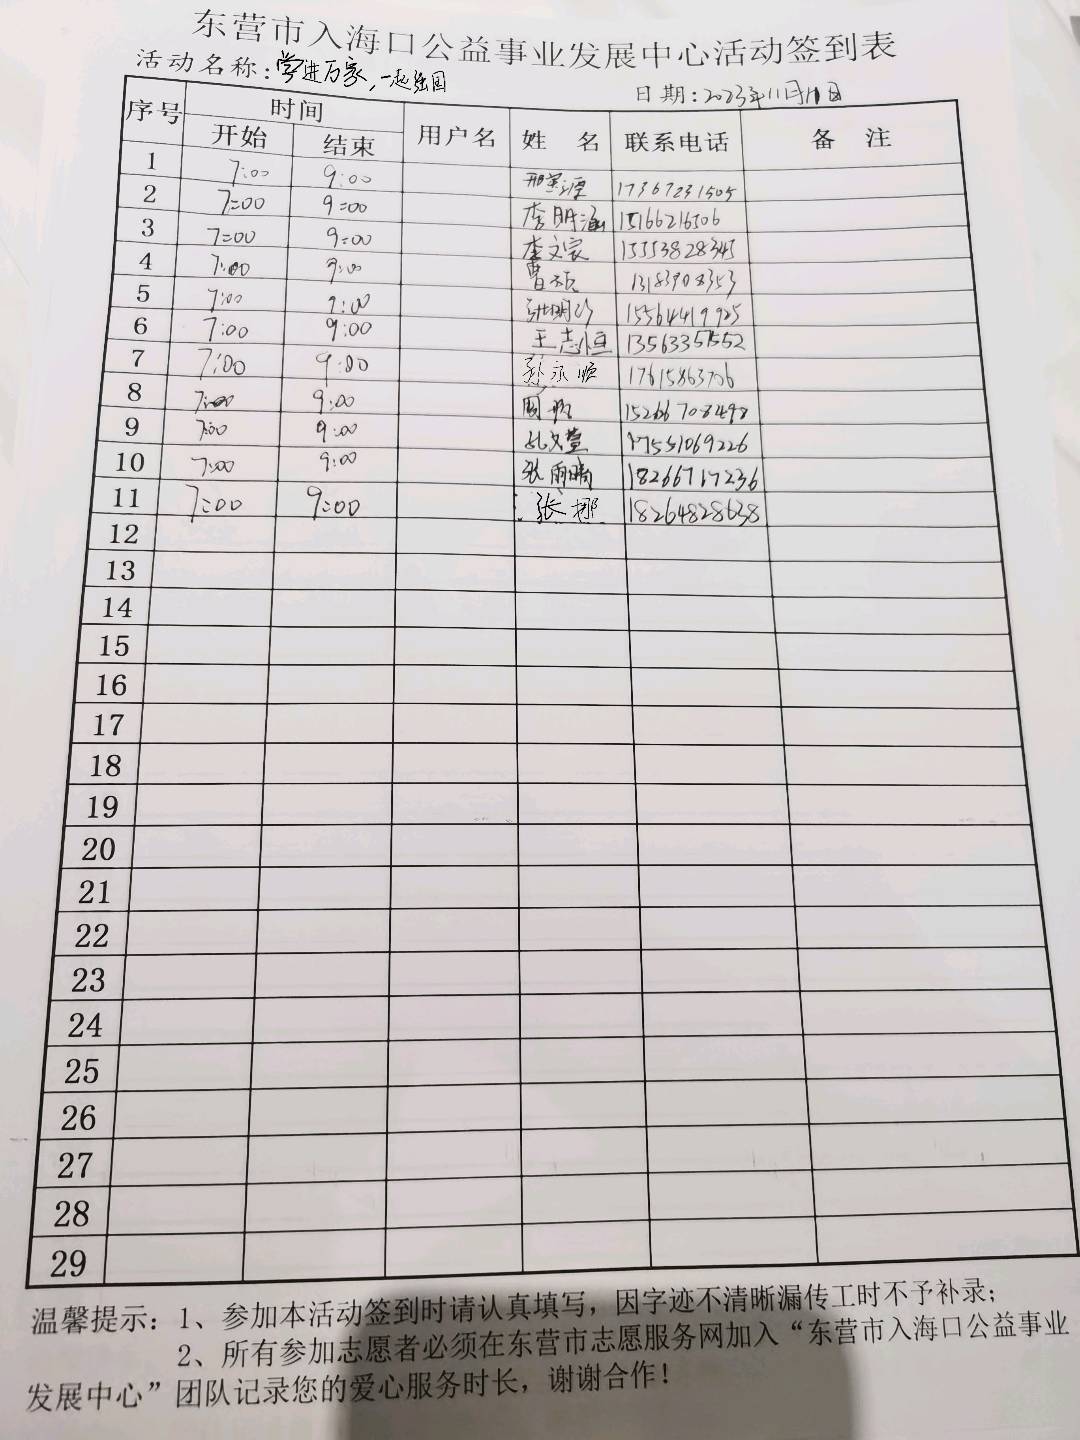 东营市入海口公益事业发展中心活动签到表
活动名称:学进万家,一起强国
日期:2023年11月11日
序号 时间 用户名 姓 名 联系电话 备 注
开始 结束
1 7:00 9:00 17367231505
2 7:00 9:00 李明涵 15166216506
3 7:00 9:00 李文家 15553828345
4 7:00 9:00 曹 13183908353
5 7:00 9:00 张明 15564419925
6 7:00 9:00 王志恒 13563351552
7 7:00 9:00 孙永顺 17615863706
8 7:00 9:00 周 15266708498
9 7:00 9:00 孔文萱 17551069226
10 7:00 9:00 张雨晴 18266717236
11 7:00 9:00 张娜 18264828638
12
13
14
15
16
17
18
19
20
21
22
23
24
25
26
27
28
29
温馨提示:1、参加本活动签到时请认真填写,因字迹不清晰漏传工时不予补录;
2、所有参加志愿者必须在东营市志愿服务网加入“东营市入海口公益事业
发展中心”团队记录您的爱心服务时长,谢谢合作!